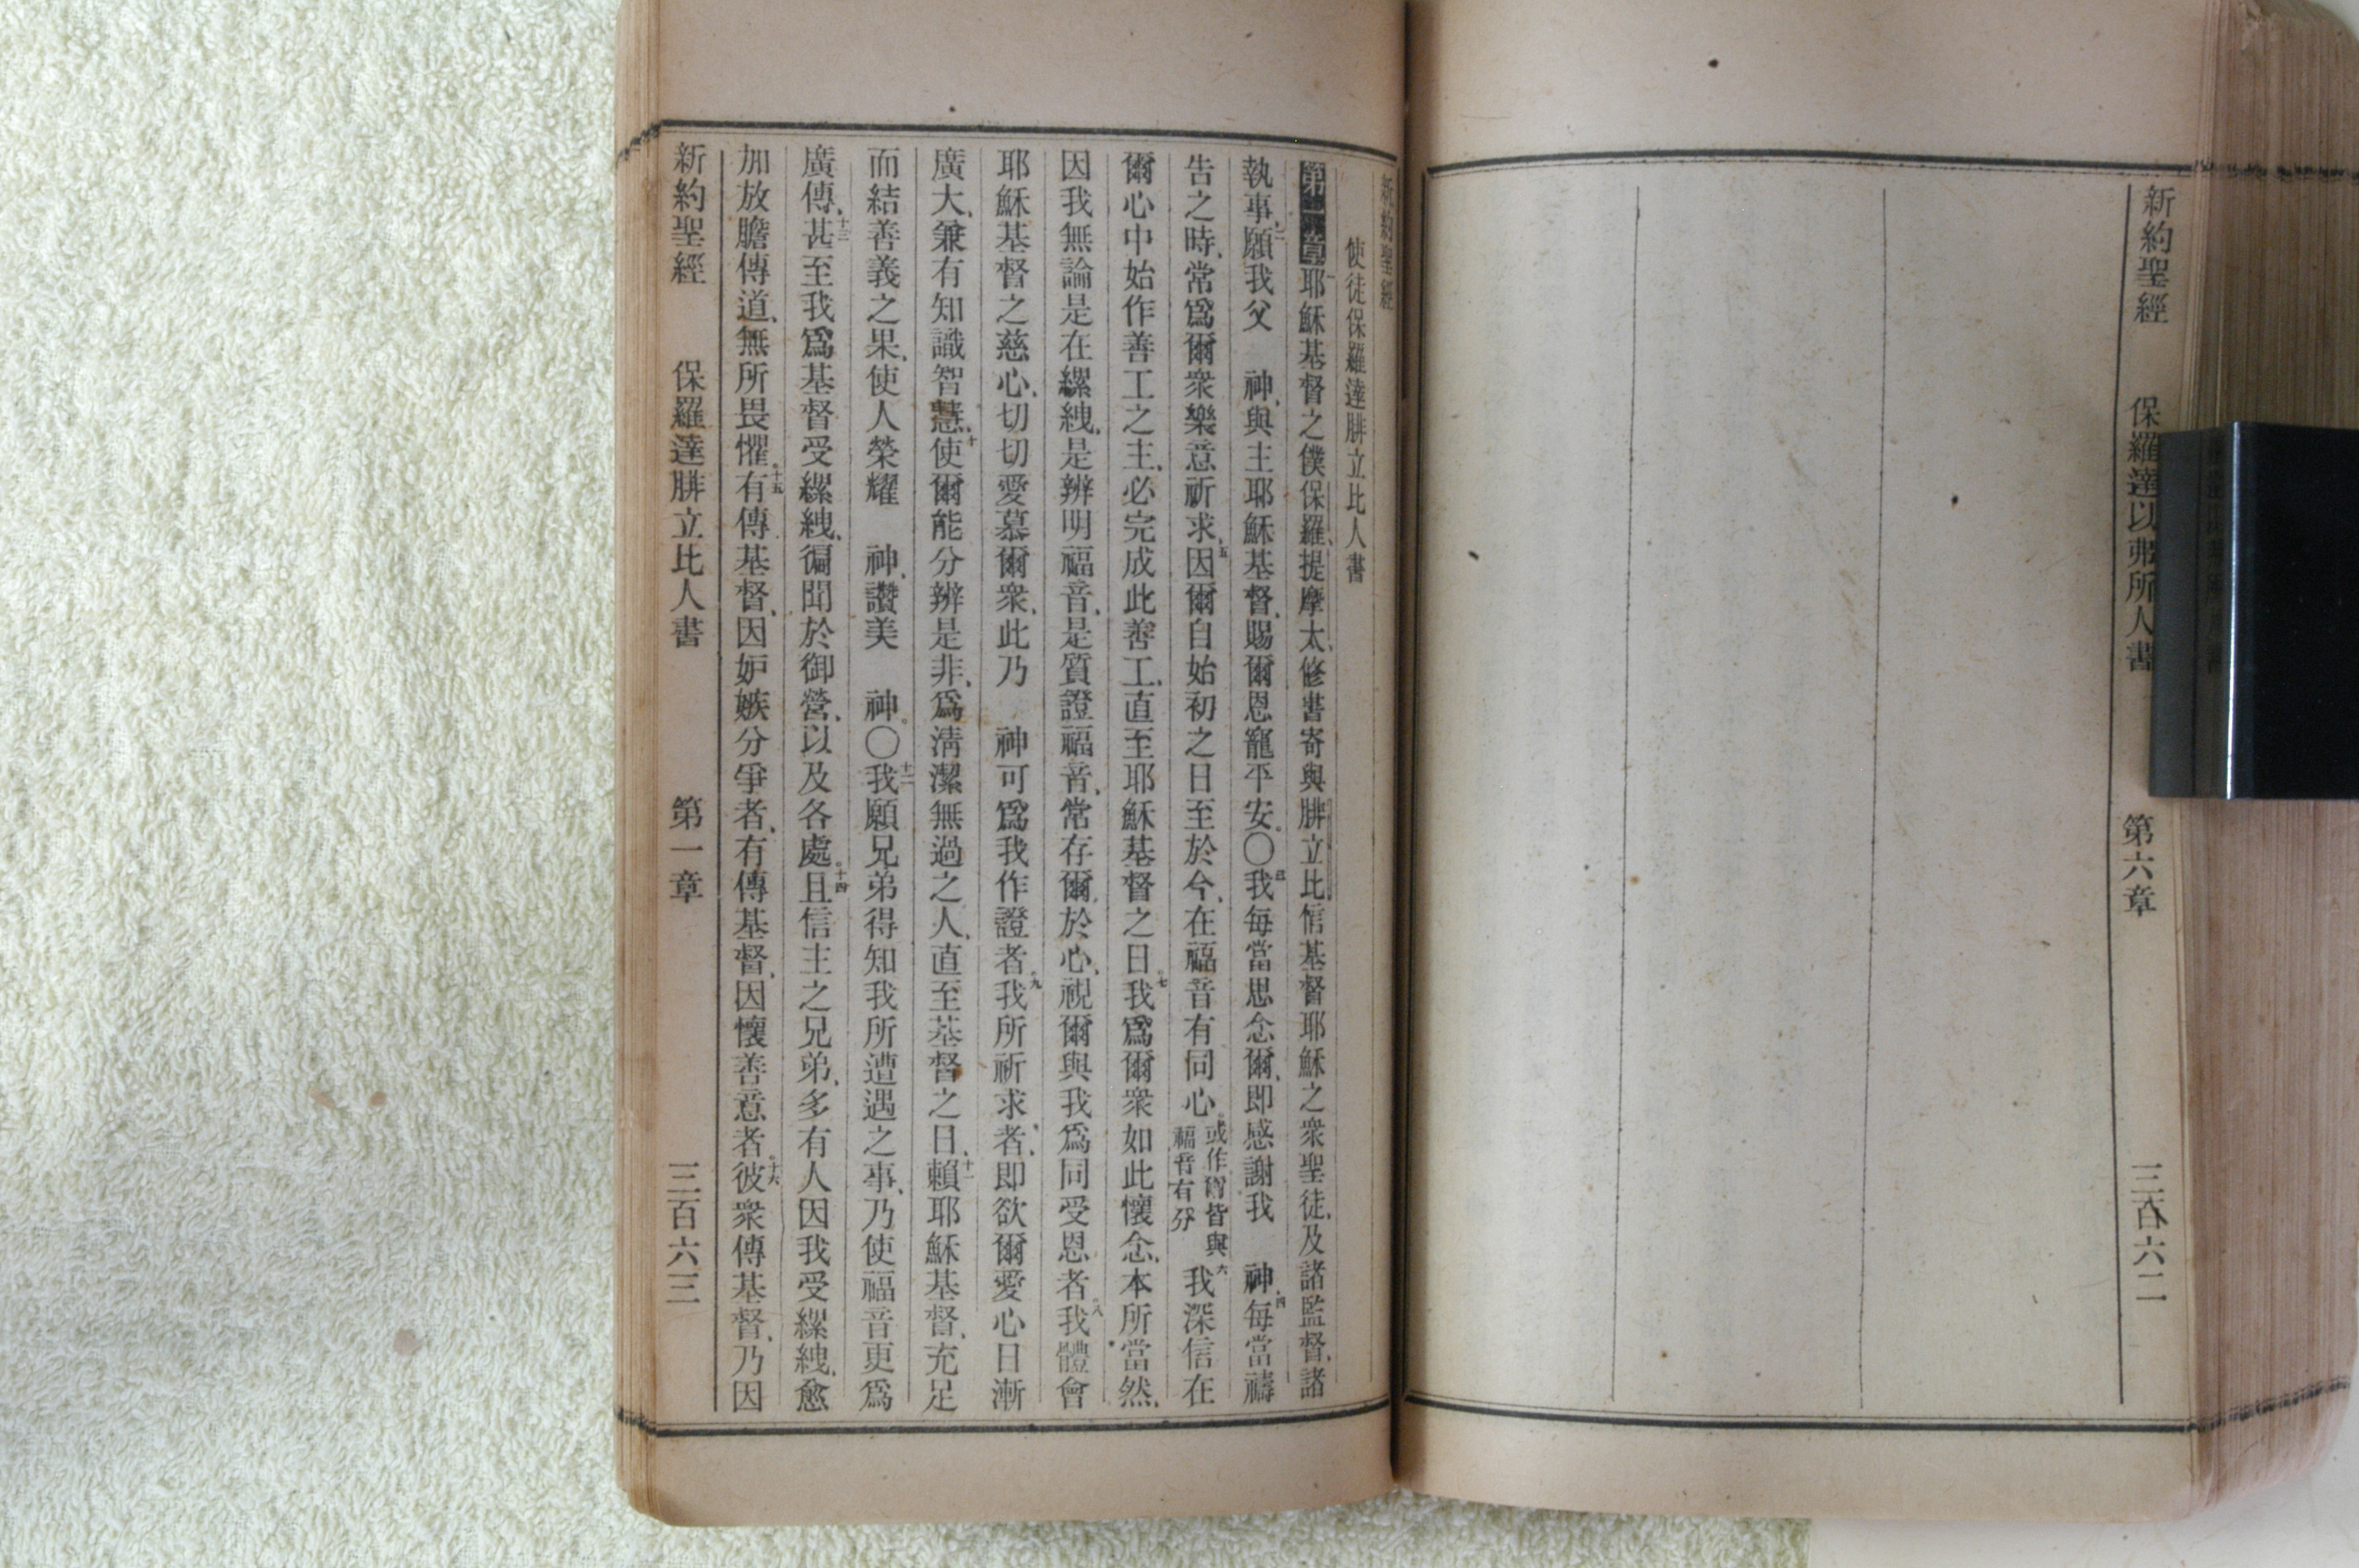 新約聖經 保羅達以弗所人書 第六章 三百六二
新約聖經
使徒保羅達腓立比人書
第一章耶穌基督之僕保羅、提摩太、修書寄與腓立比信基督耶穌之衆聖徒、及諸監督、諸
執事、二願我父 神、與主耶穌基督、賜爾恩寵平安。〇三我每當思念爾、即感謝我 神、四每當禱
告之時、常爲爾衆樂意祈求、五因爾自始初之日至於今、在福音有同心。或作爾皆與福音有分六我深信在
爾心中始作善工之主、必完成此善工、直至耶穌基督之日。七我爲爾衆如此懷念、本所當然、
因我無論是在縲絏、是辨明福音、是質證福音、常存爾於心、視爾與我爲同受恩者。八我體會
耶穌基督之慈心、切切愛慕爾衆、此乃 神可爲我作證者。九我所祈求者、即欲爾愛心日漸
廣大、兼有知識智慧、十使爾能分辨是非、爲清潔無過之人、直至基督之日、十一賴耶穌基督、充足
而結善義之果、使人榮耀 神、讚美 神。〇十二我願兄弟得知我所遭遇之事、乃使福音更爲
廣傳、十三甚至我爲基督受縲絏、徧聞於御營、以及各處。十四且信主之兄弟、多有人因我受縲絏、愈
加放膽傳道、無所畏懼。十五有傳基督、因妒嫉分爭者、有傳基督、因懷善意者。十六彼衆傳基督、乃因
新約聖經 保羅達腓立比人書 第一章 三百六三